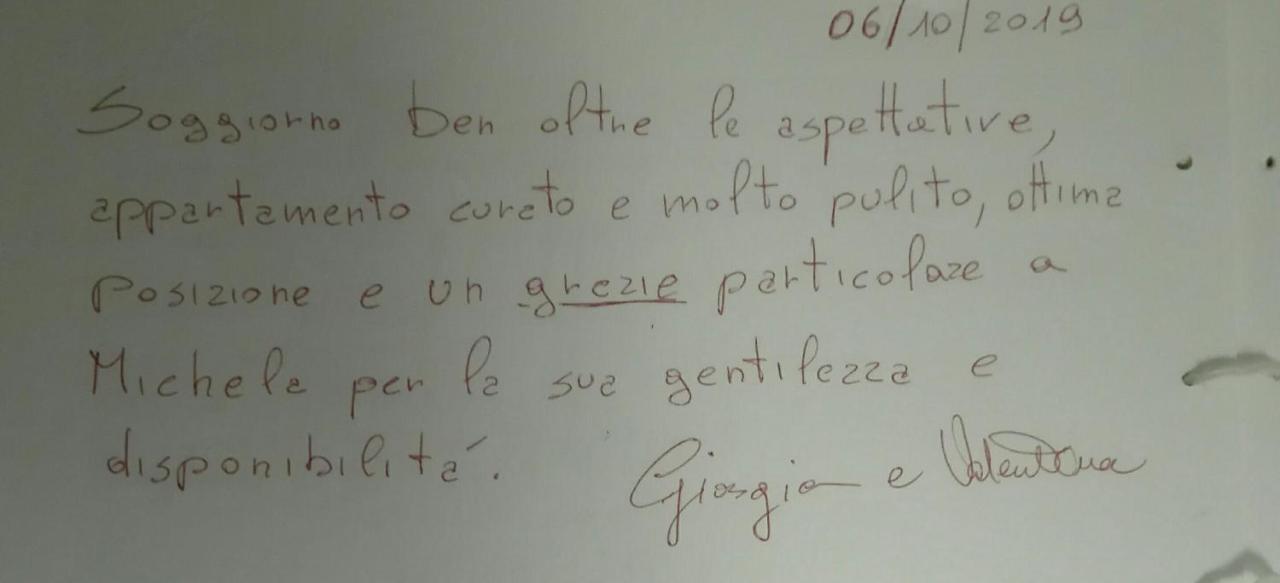 06/10/2019
Soggiorno ben oltre le aspettative,
appartamento curato e molto pulito, ottima
posizione e un grazie particolare a
Michela per la sua gentilezza e
disponibilità.
Giorgia e Valentina